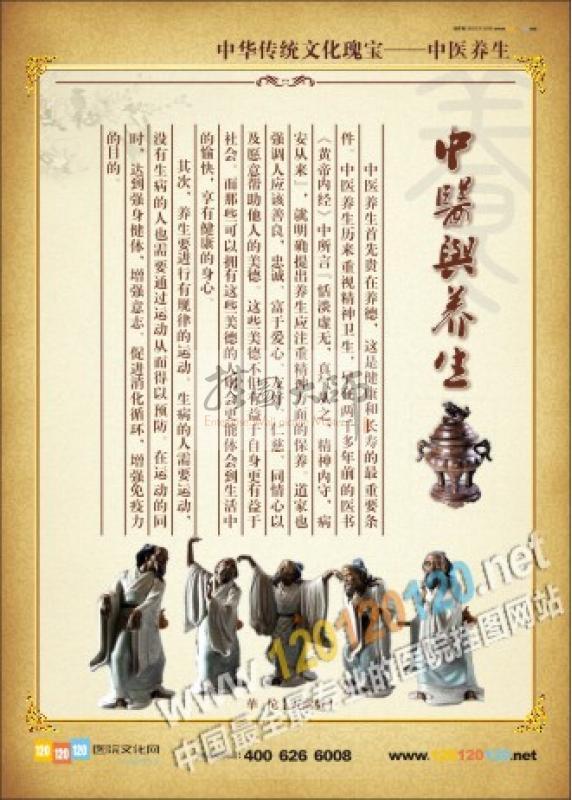 中华传统文化瑰宝——中医养生
中醫與养生
中医养生首先贵在养德，这是健康和长寿的最重要条
件。中医养生历来重视精神卫生，早在两千多年前的医书
《黄帝内经》中所言『恬淡虚无，真气从之，精神内守，病
安从来』，就明确提出养生应注重精神方面的保养。道家也
强调人应该善良，忠诚，富于爱心，友好，仁慈，同情心以
及愿意帮助他人的美德。这些美德不但有益于自身更有益于
社会。而那些可以拥有这些美德的人则会更能体会到生活中
的愉快，享有健康的身心。
其次，养生要进行有规律的运动。生病的人需要运动，
没有生病的人也需要通过运动从而得以预防。在运动的同
时，达到强身健体，增强意志，促进消化循环，增强免疫力
的目的。
挂图大师
华佗【五禽戏】
www.120120120.net
中国最全最专业的医院挂图网站
120 120 120 医院文化网
400 626 6008
www.120120120.net